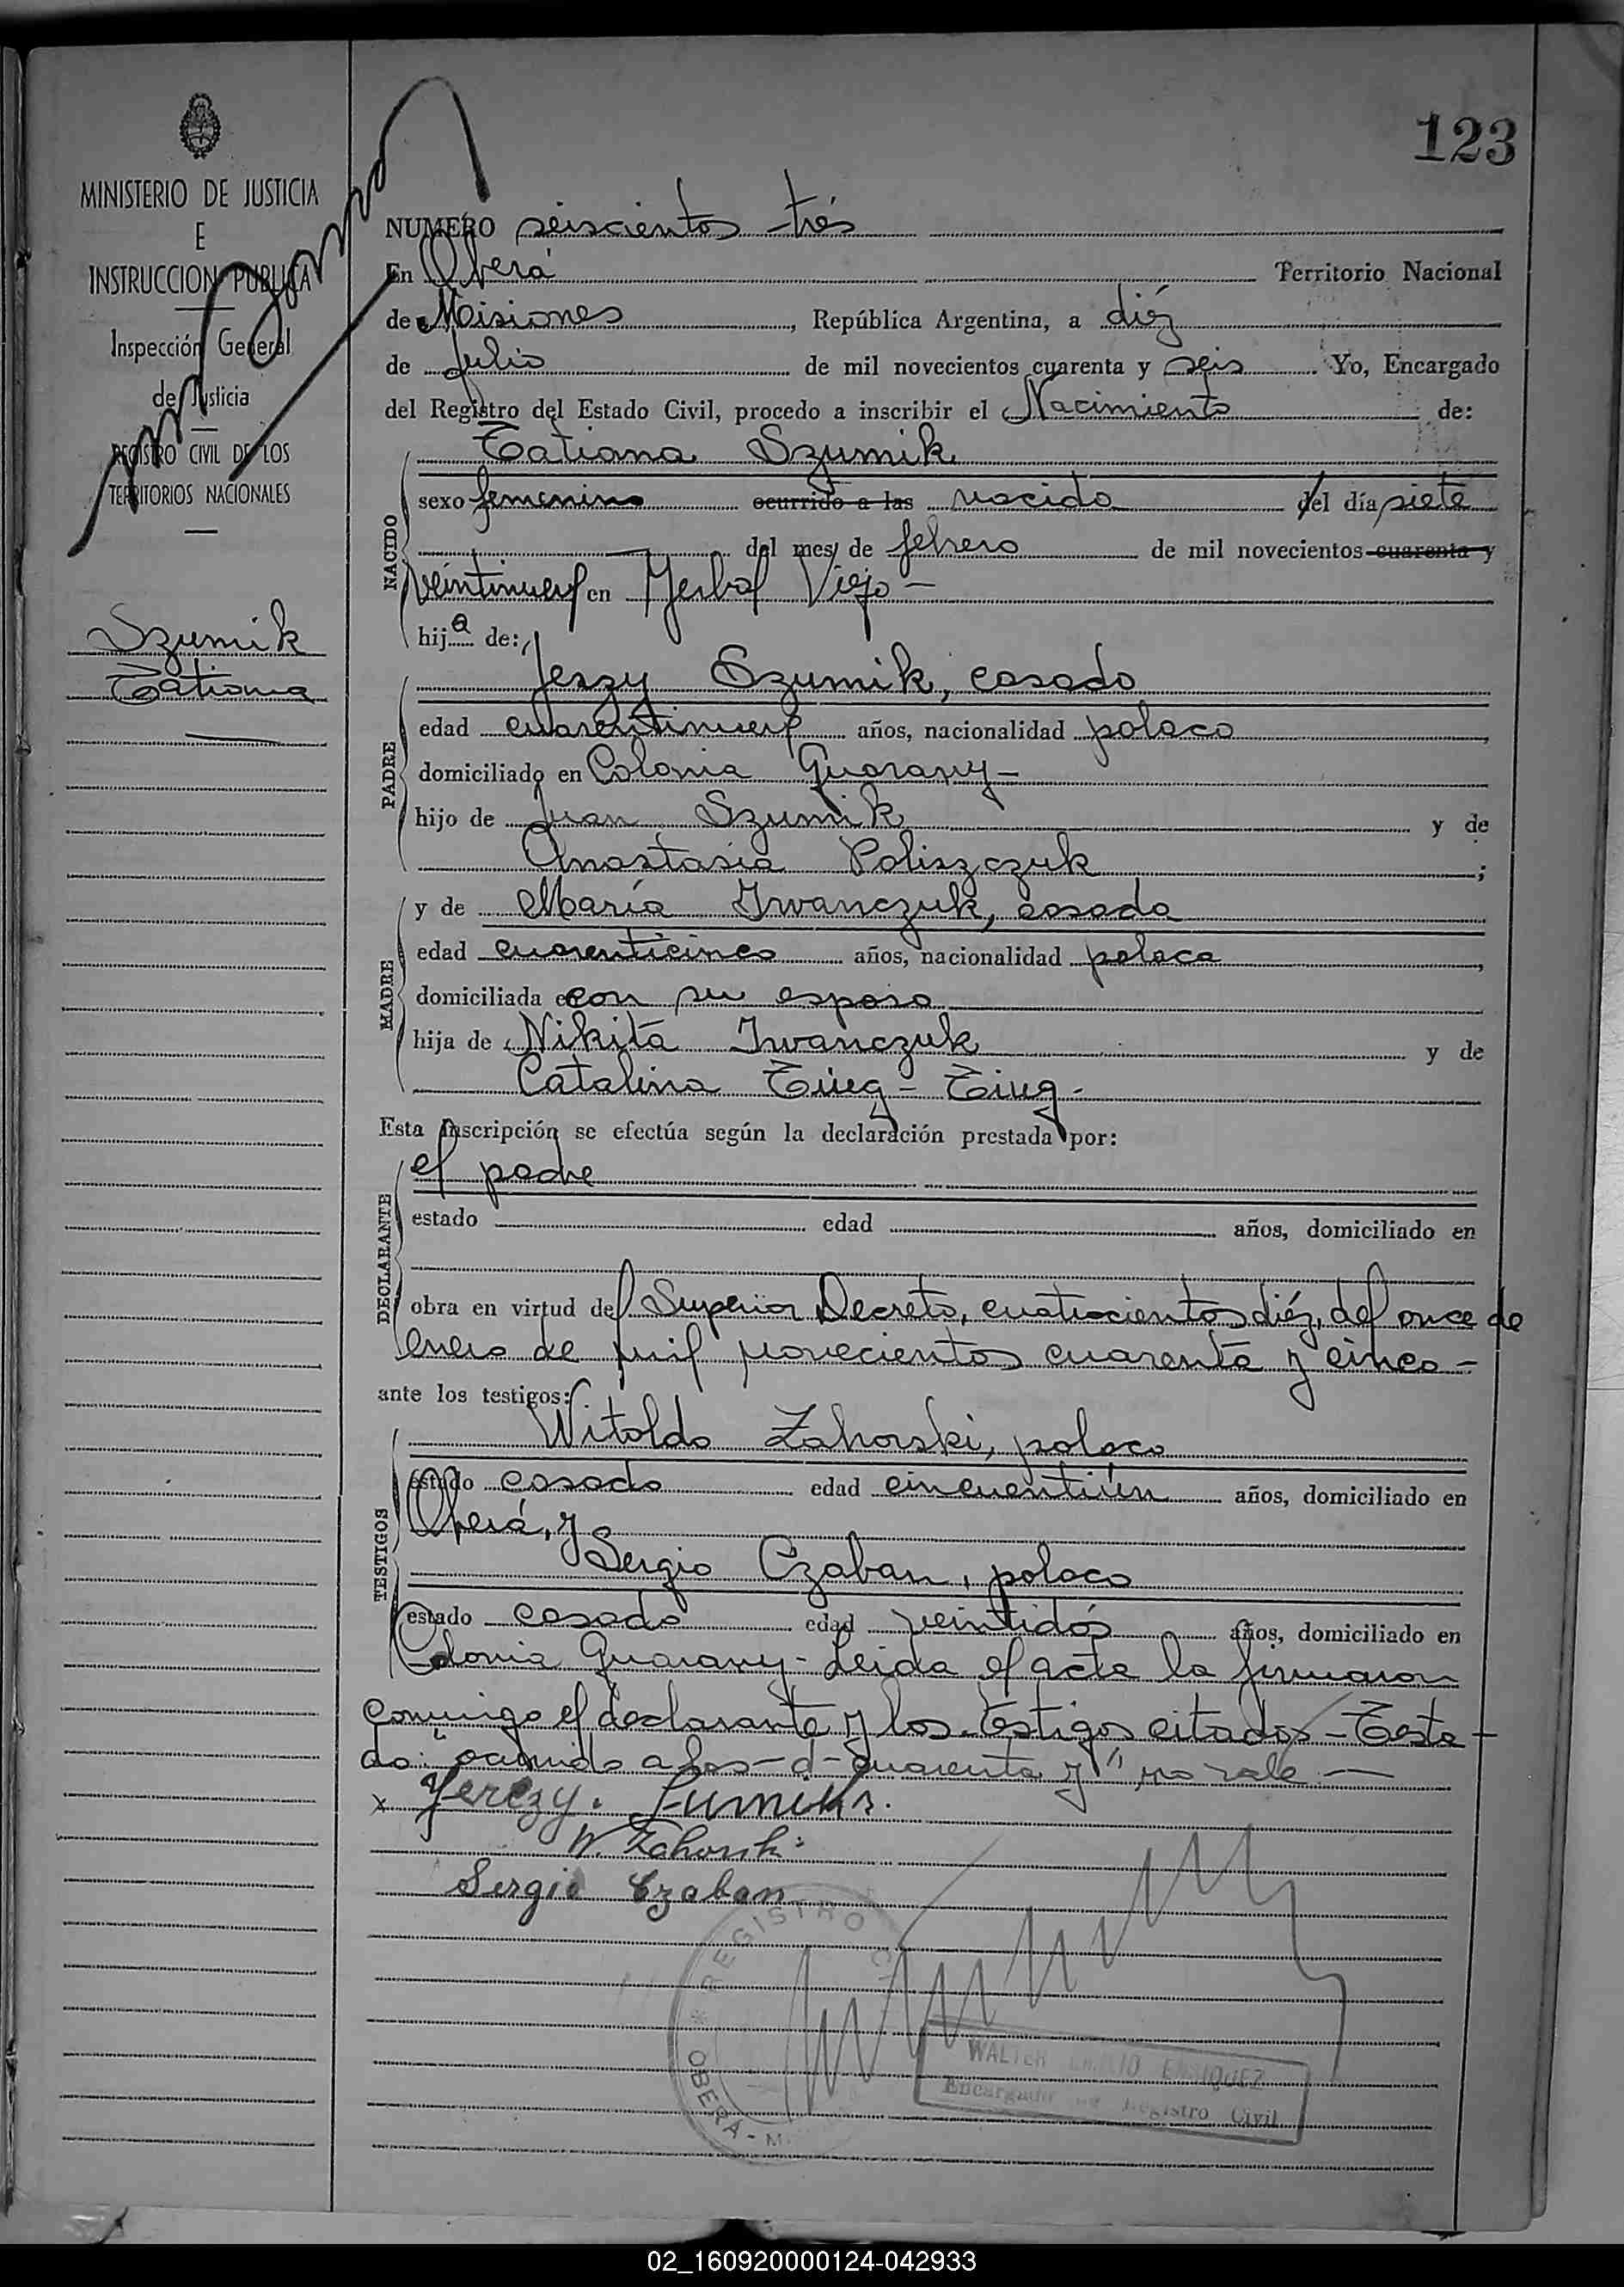 123
MINISTERIO DE JUSTICIA
E
INSTRUCCION PUBLICA
Inspección General
de Justicia
REGISTRO CIVIL DE LOS
TERRITORIOS NACIONALES
Szumik
Tatiana
NUMERO seiscientos trés
En Oberá Territorio Nacional
de Misiones, República Argentina, a diéz
de Julio de mil novecientos cuarenta y seis. Yo, Encargado
del Registro del Estado Civil, procedo a inscribir el Nacimiento de:
Tatiana Szumik
NACIDO
sexo femenino ocurrido a las nacida del día siete
del mes de febrero de mil novecientos cuarenta y
veintinuef en Yerbal Viejo -
hija de:
PADRE
Jerzy Szumik, casado
edad cuarentinuef años, nacionalidad polaco,
domiciliado en Colonia Guarany -
hijo de Juan Szumik y de
Anastasia Poliszczuk;
MADRE
y de María Iwanczuk, casada
edad cuarenticinco años, nacionalidad polaca,
domiciliada con su esposo
hija de Nikita Iwanczuk y de
Catalina
Esta inscripción se efectúa según la declaración prestada por:
DECLARANTE
el padre
estado edad años, domiciliado en
obra en virtud del Superior Decreto, cuatrocientos diéz, del once de
enero de mil novecientos cuarenta y cinco -
ante los testigos:
TESTIGOS
Witoldo Zahorski, polaco
estado casado edad cincuentiún años, domiciliado en
Oberá, y
Sergio Czaban, polaco
estado casado edad veintidós años, domiciliado en
Colonia Guarany - Leida el acta la firmaron
conmigo el declarante y los testigos citados - Testa-
do: "ocurrido a las - d - cuarenta y" no vale. -
x Jerczy. Szumik
W. Zahorski
Sergio Czaban
REGISTRO CI
OBERA - M
WALTER EMILIO ENRIQUEZ
Encargado del Registro Civil
02_160920000124-042933